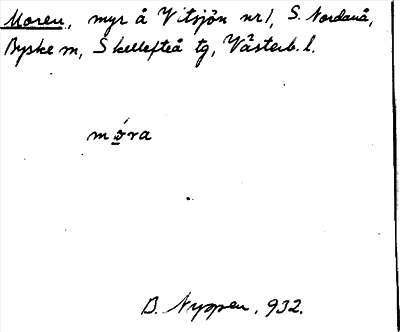 Moren, myr å Vitsjön nr 1, S. Nordanå,
Byske sn, Skellefteå tg, Västerb. l.
mo̲ra
B. Nyppen, 932.